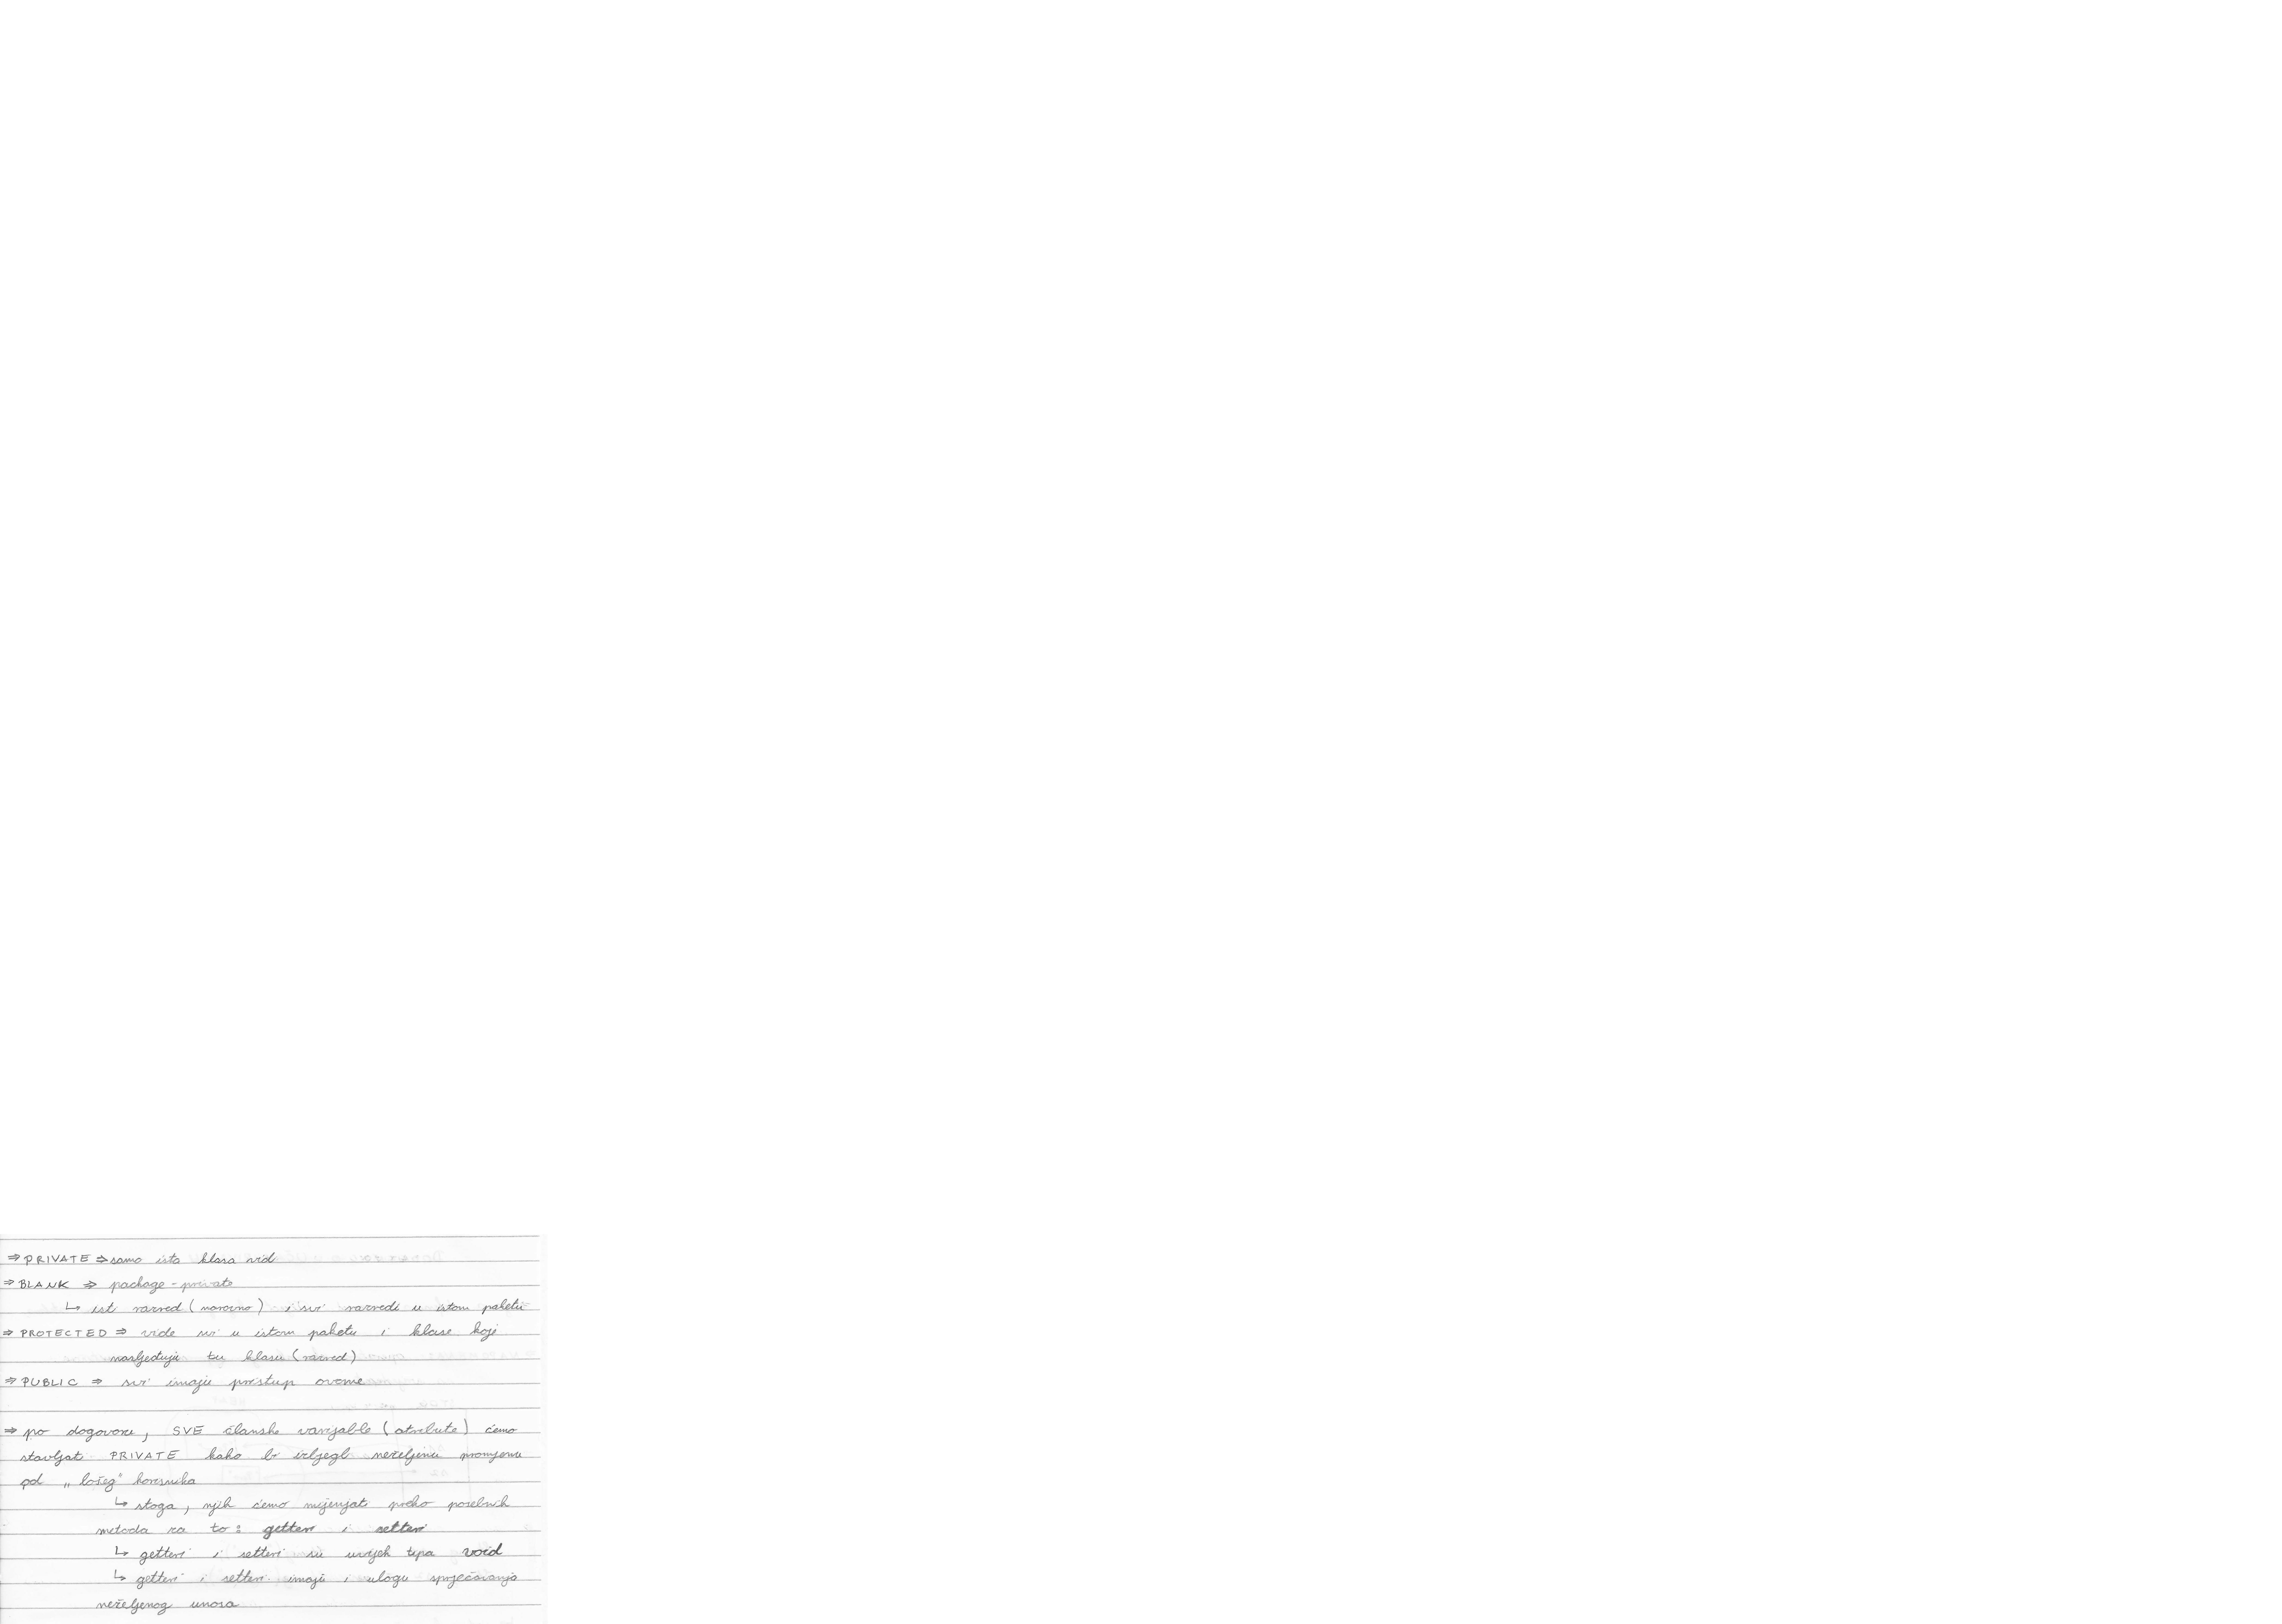 ⇒ PRIVATE ⇒ samo ista klasa vidi
⇒ BLANK ⇒ package-private
↳ isti razred (naravno) i svi razredi u istom paketu
⇒ PROTECTED ⇒ vide svi u istom paketu i klase koji
nasljeđuju tu klasu (razred)
⇒ PUBLIC ⇒ svi imaju pristup ovome
⇒ po dogovoru, SVE članske varijable (atribute) ćemo
stavljat PRIVATE kako bi izbjegli neželjenu promjenu
od „lošeg" korisnika
↳ stoga, njih ćemo mijenjat preko posebnih
metoda za to: getteri i setteri
↳ getteri i setteri su uvijek tipa void
↳ getteri i setteri imaju i ulogu sprječavanja
neželjenog unosa